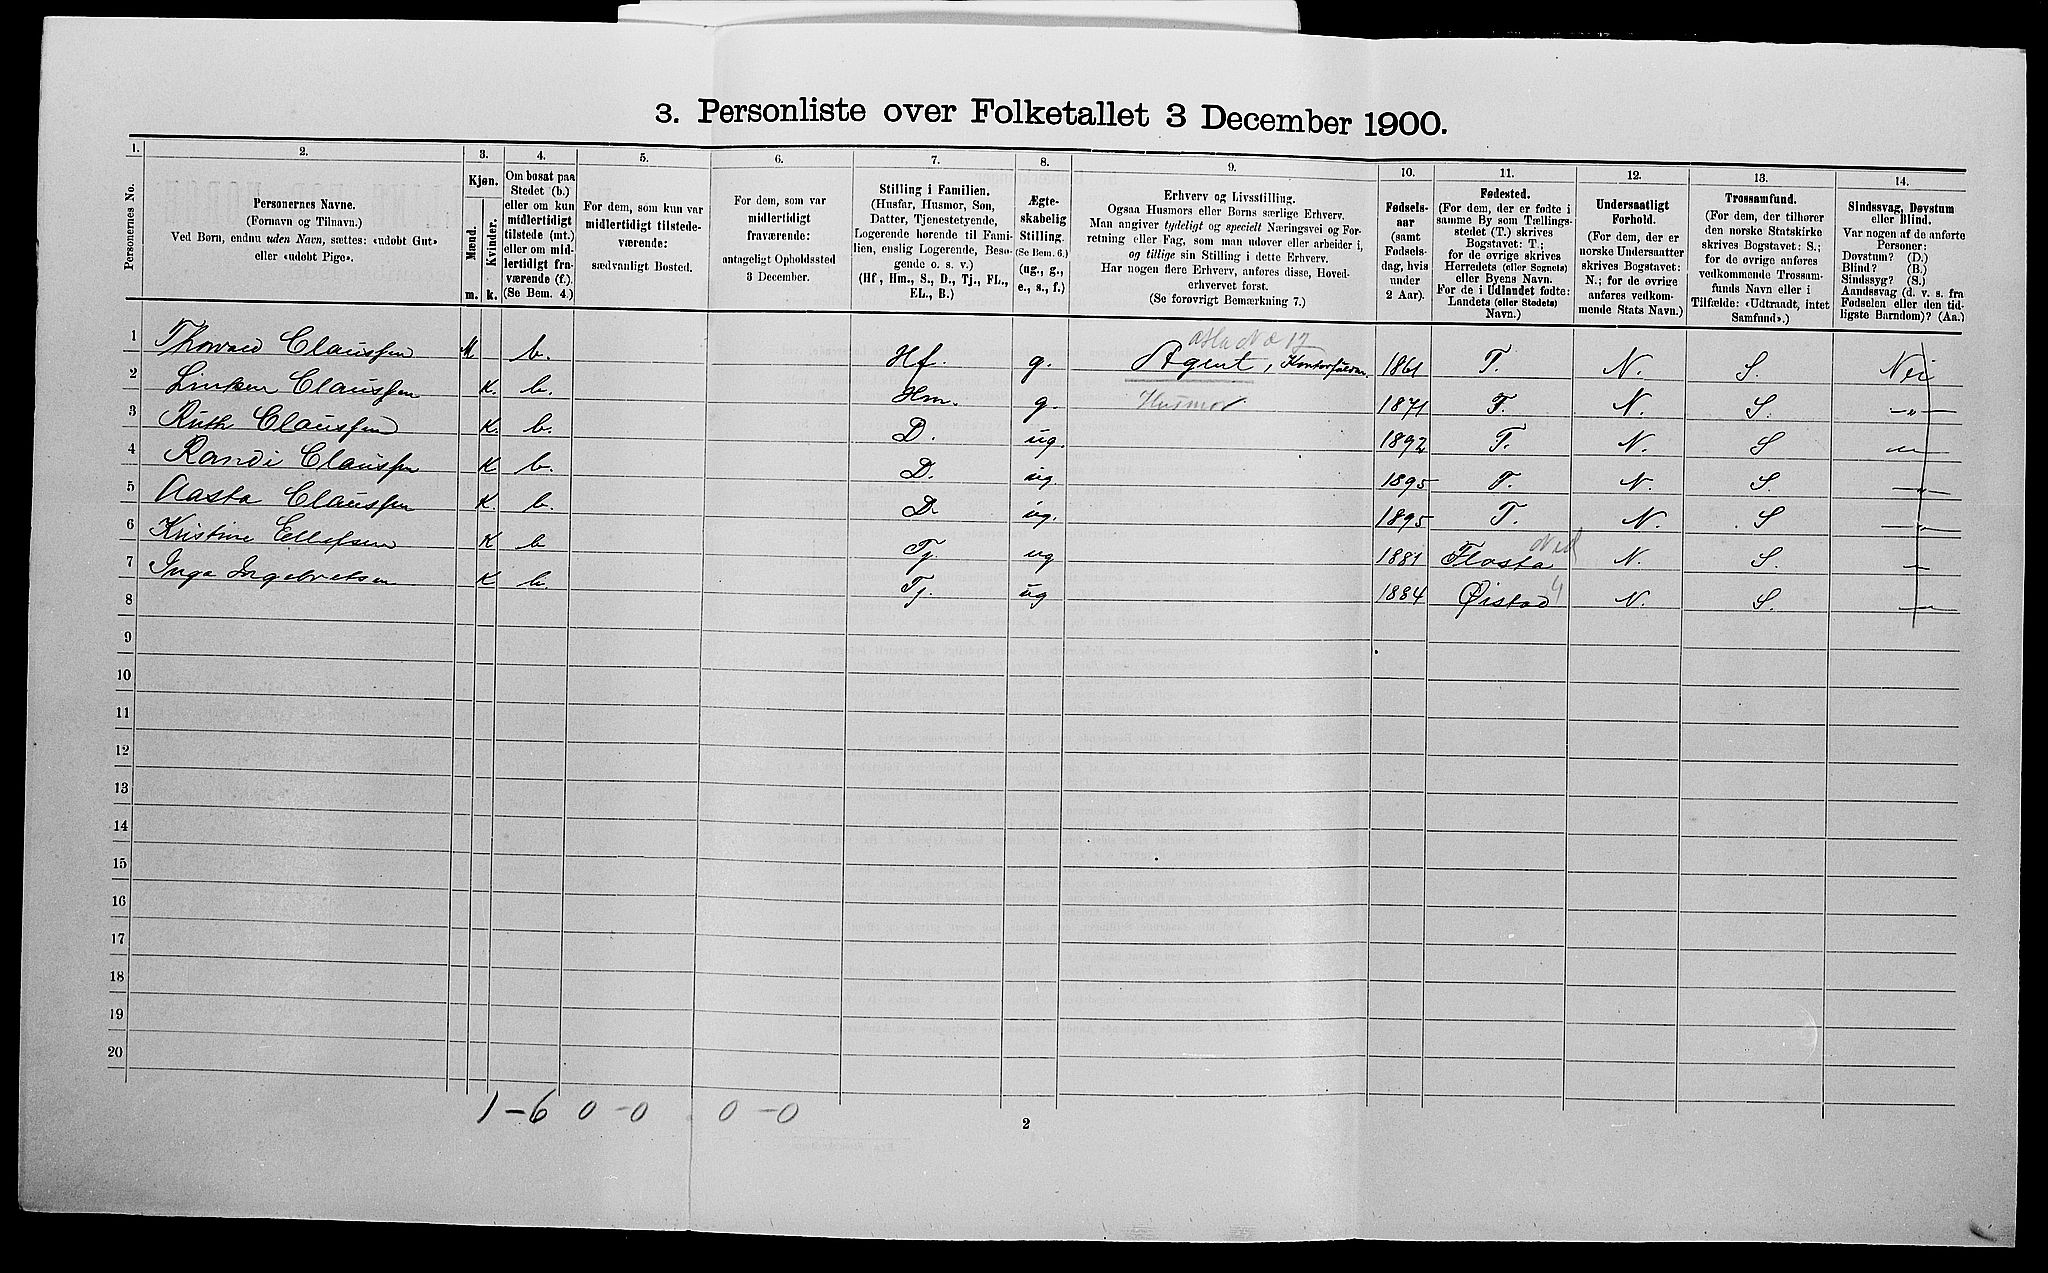 3. Personliste over Folketallet 3 December 1900.
1. 2. 3. 4. 5. 6. 7. 8. 9. 10. 11. 12. 13. 14.
Personernes No.
Personernes Navne.
(Fornavn og Tilnavn.)
Ved Børn, endnu uden Navn, sættes: «udøbt Gut»
eller «udøbt Pige».
Kjøn.
Mænd.
Kvinder.
m. k.
Om bosat paa
Stedet (b.)
eller om kun
midlertidigt
tilstede (mt.)
eller om mid-
lertidigt fra-
værende (f.).
(Se Bem. 4.)
For dem, som kun var
midlertidigt tilstede-
værende:
sædvanligt Bosted.
For dem, som var
midlertidigt
fraværende:
antageligt Opholdssted
3 December.
Stilling i Familien.
(Husfar, Husmor, Søn,
Datter, Tjenestetyende,
Logerende hørende til Fami-
lien, enslig Logerende, Besø-
gende o. s. v.)
(Hf, Hm., S., D., Tj., FL.,
EL., B.)
Ægte-
skabelig
Stilling.
(Se Bem. 6.)
(ug., g.,
e., s., f.)
Erhverv og Livsstilling.
Ogsaa Husmors eller Børns særlige Erhverv.
Man angiver tydeligt og specielt Næringsvei og For-
retning eller Fag, som man udøver eller arbeider i,
og tillige sin Stilling i dette Erhverv.
Har nogen flere Erhverv, anføres disse, Hoved-
erhvervet først.
(Se forøvrigt Bemærkning 7.)
Fødsels-
aar
(samt
Fødsels-
dag, hvis
under
2 Aar).
Fødested.
(For dem, der er fødte i
samme By som Tællings-
stedet (T.) skrives
Bogstavet: T.;
for de øvrige skrives
Herredets (eller Sognets)
eller Byens Navn.
For de i Udlandet fødte:
Landets (eller Stedets)
Navn.)
Undersaatligt
Forhold.
(For dem, der er
norske Undersaatter
skrives Bogstavet:
N.; for de øvrige
anføres vedkom-
mende Stats Navn.)
Trossamfund.
(For dem, der tilhører
den norske Statskirke
skrives Bogstavet: S.;
for de øvrige anføres
vedkommende Trossam-
funds Navn eller i
Tilfælde: «Udtraadt, intet
Samfund».)
Sindssvag, Døvstum
eller Blind.
Var nogen af de anførte
Personer:
Døvstum? (D.)
Blind? (B.)
Sindssyg? (S.)
Aandssvag (d. v. s. fra
Fødselen eller den tid-
ligste Barndom)? (Aa.)
1 Thorvald Claussen M b. Hf. g. Agent, 1861 T. N. S. Nei
2 Claussen K. b. Hm. g. Husmor 1871 T. N. S. -„-
3 Ruth Claussen K. b. D. ug. 1892 T. N. S „
4 Randi Claussen K b. D. ug 1895 T. N. S. -„-
5 Aasta Claussen K. b. D. ug. 1895 T. N. S -„-
6 Kristine Ellefsen K b Tj. ug 1881 Flosta Ned N. S. -
7 Inga Ingebretsen K b. Tj. ug 1884 Øistad 4 N. S. -„-
8
9
10
11
12
13
14
15
16
17
18
19
20
1-6 0-0 0-0
2